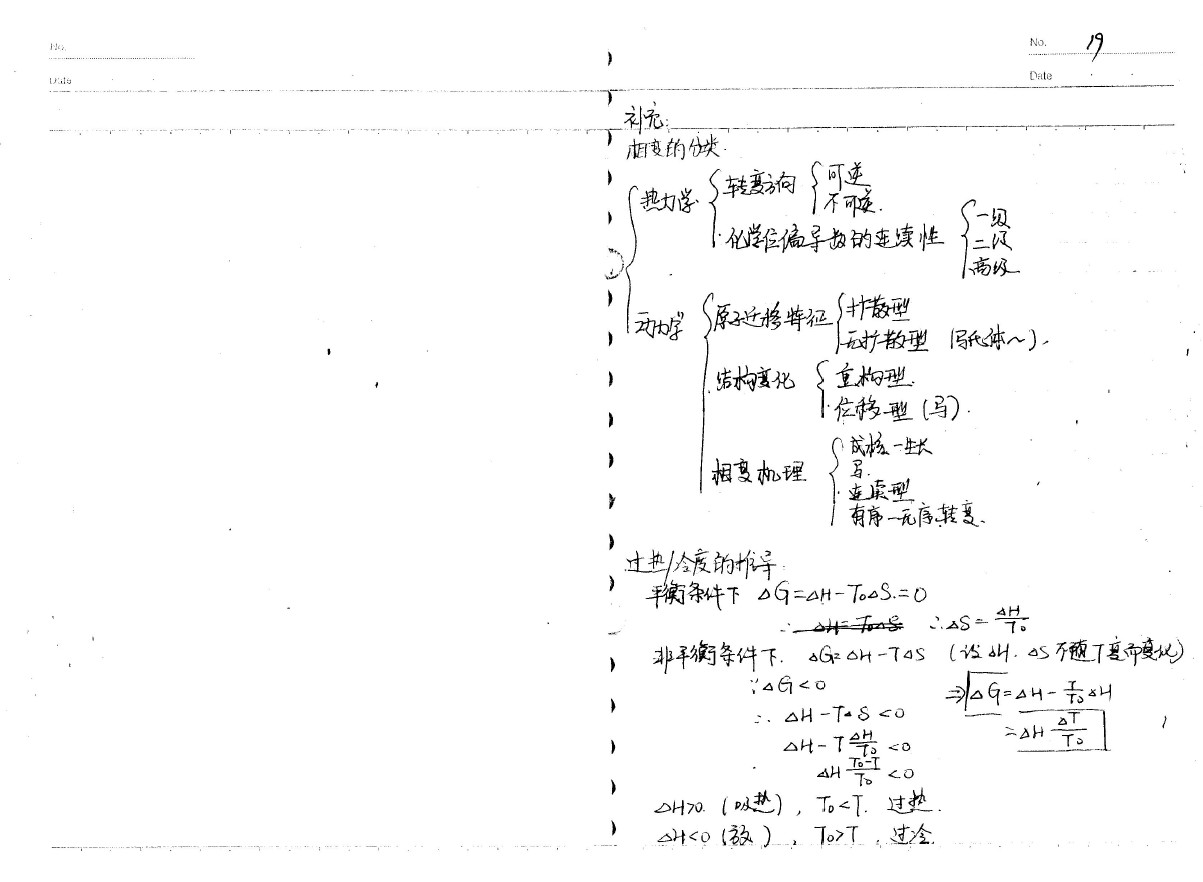 No.
Date
No. 19
Date
补充:
相变的分类.
热力学 { 转变方向 { 可逆
不可逆.
化学位偏导数的连续性 { 一级
二级
高级
动力学 { 原子迁移特征 { 扩散型
无扩散型 (马氏体~).
结构变化 { 重构型.
位移型 (马).
相变机理 { 成核-生长
马.
连续型
有序-无序转变.
过热/冷度的推导
平衡条件下 △G=△H-T₀△S.=0
∴ △H=T₀△S ∴△S=△H/T₀
非平衡条件下. △G=△H-T△S (设△H. △S不随T变而变化)
∵△G<0 ⇒△G=△H-T/T₀△H
∴ △H-T△S<0 =△H △T/T₀
△H-T△H/T₀<0
△H T₀-T/T₀<0
△H>0. (吸热), T₀<T. 过热.
△H<0 (放 ), T₀>T, 过冷.